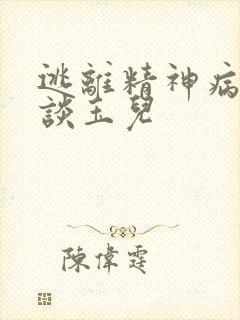 逃離精神病
談玉兒
陳偉霆